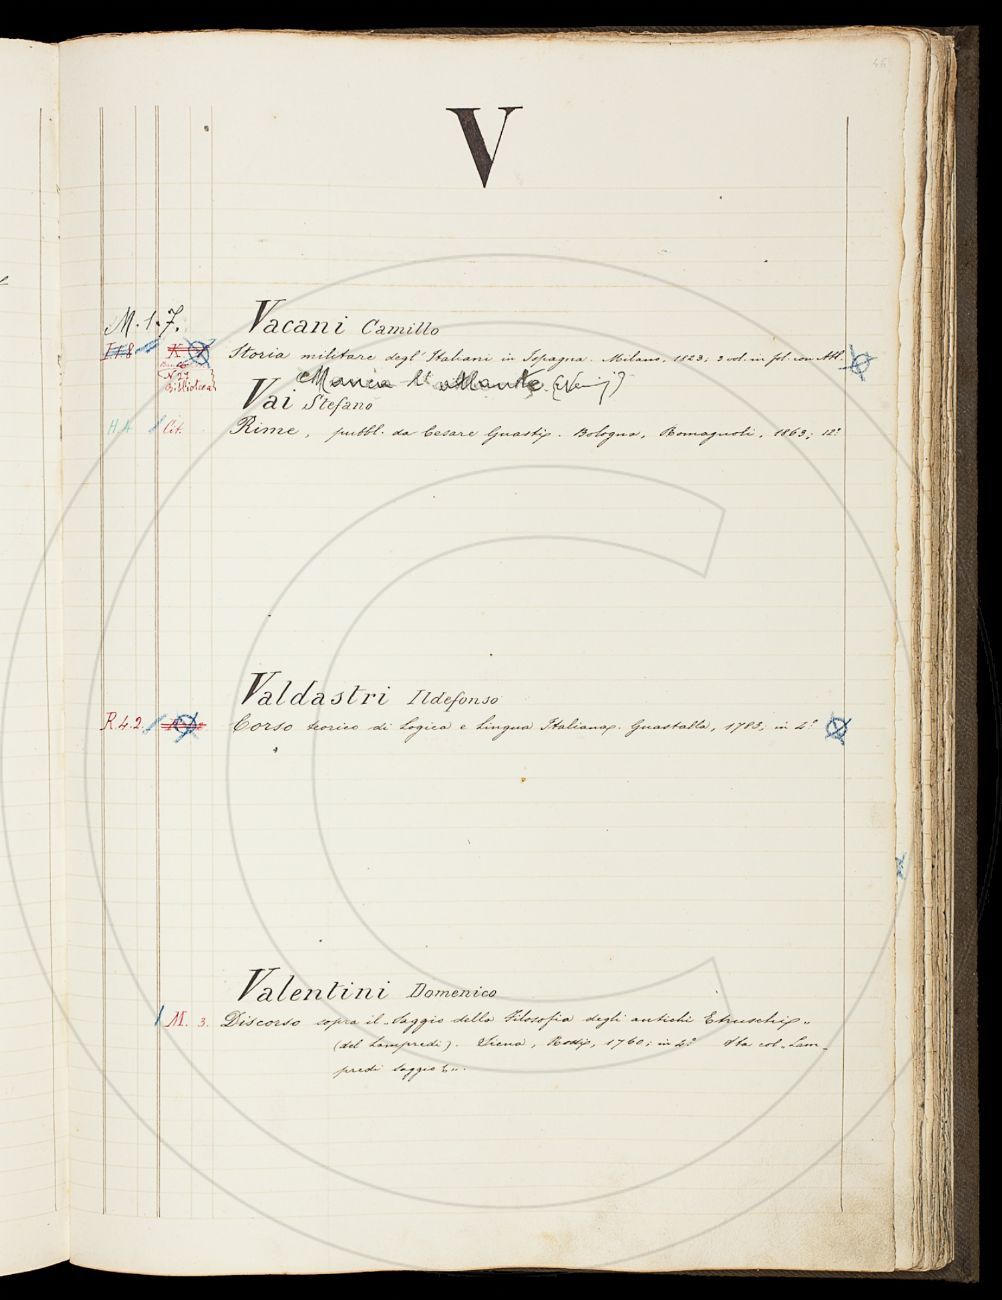 46
V
M. 1. 7.
Vacani Camillo
I 1 8
Storia militare degl' Italiani in Ispagna. Milano, 1823; 3 vol. in fol. con Atl.
N 27
Biblioteca
Manca l' atlante.
Vai Stefano
H. 4 Cit. Rime, pubbl. da Cesare Guasti. Bologna, Romagnoli, 1863; 12°
Valdastri Ildefonso
R. 4. 2. Corso teorico di Logica e Lingua Italiana. Guastalla, 1783; in 4°
Valentini Domenico
M. 3. Discorso sopra il „Saggio della Filosofia degli antichi Etruschi„
(del Lampredi). Siena, 1760; in 4° Sta col „Lam-
predi Saggio